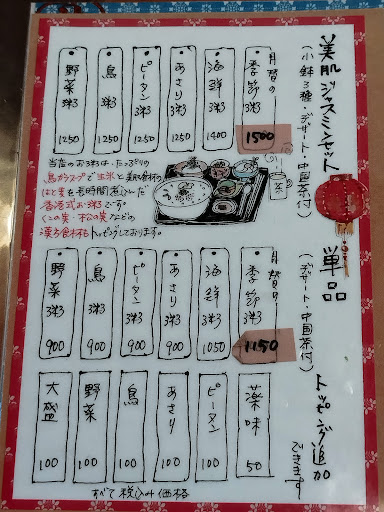 美肌ジャスミンセット
(小鉢3種・デザート・中国茶付)
月替の
季節粥
1500
海鮮粥
1400
あさり粥
1250
ピータン粥
1250
鳥粥
1250
野菜粥
1250
当店のお粥は、たっぷりの
鳥ガラスープで生米と
はと麦を長時間煮込んだ
香港式お粥です。
くこの実・松の実などの
漢方食材をトッピングしております。
単品
(デザート・中国茶付)
月替の
季節粥
1150
海鮮粥
1050
あさり粥
900
ピータン粥
900
鳥粥
900
野菜粥
900
トッピング追加
できます
薬味
50
ピータン
100
あさり
100
鳥
100
野菜
100
大盛
100
すべて税込み価格